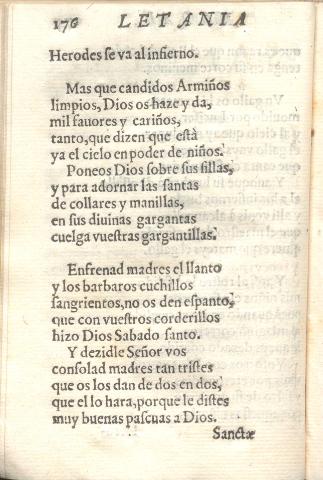 176 LETANIA
Herodes se va al infierno.
Mas que candidos Armiños
limpios, Dios os haze y da,
mil fauores y cariños,
tanto, que dizen que està
ya el cielo en poder de niños.
Poneos Dios sobre sus sillas,
y para adornar las santas
de collares y manillas,
en sus diuinas gargantas
cuelga vuestras gargantillas.
Enfrenad madres el llanto
y los barbaros cuchillos
sangrientos, no os den espanto,
que con vuestros corderillos
hizo Dios Sabado santo.
Y dezidle Señor vos
consolad madres tan tristes
que os los dan de dos en dos,
que el lo hara, porque le distes
muy buenas pascuas a Dios.
Sanctæ